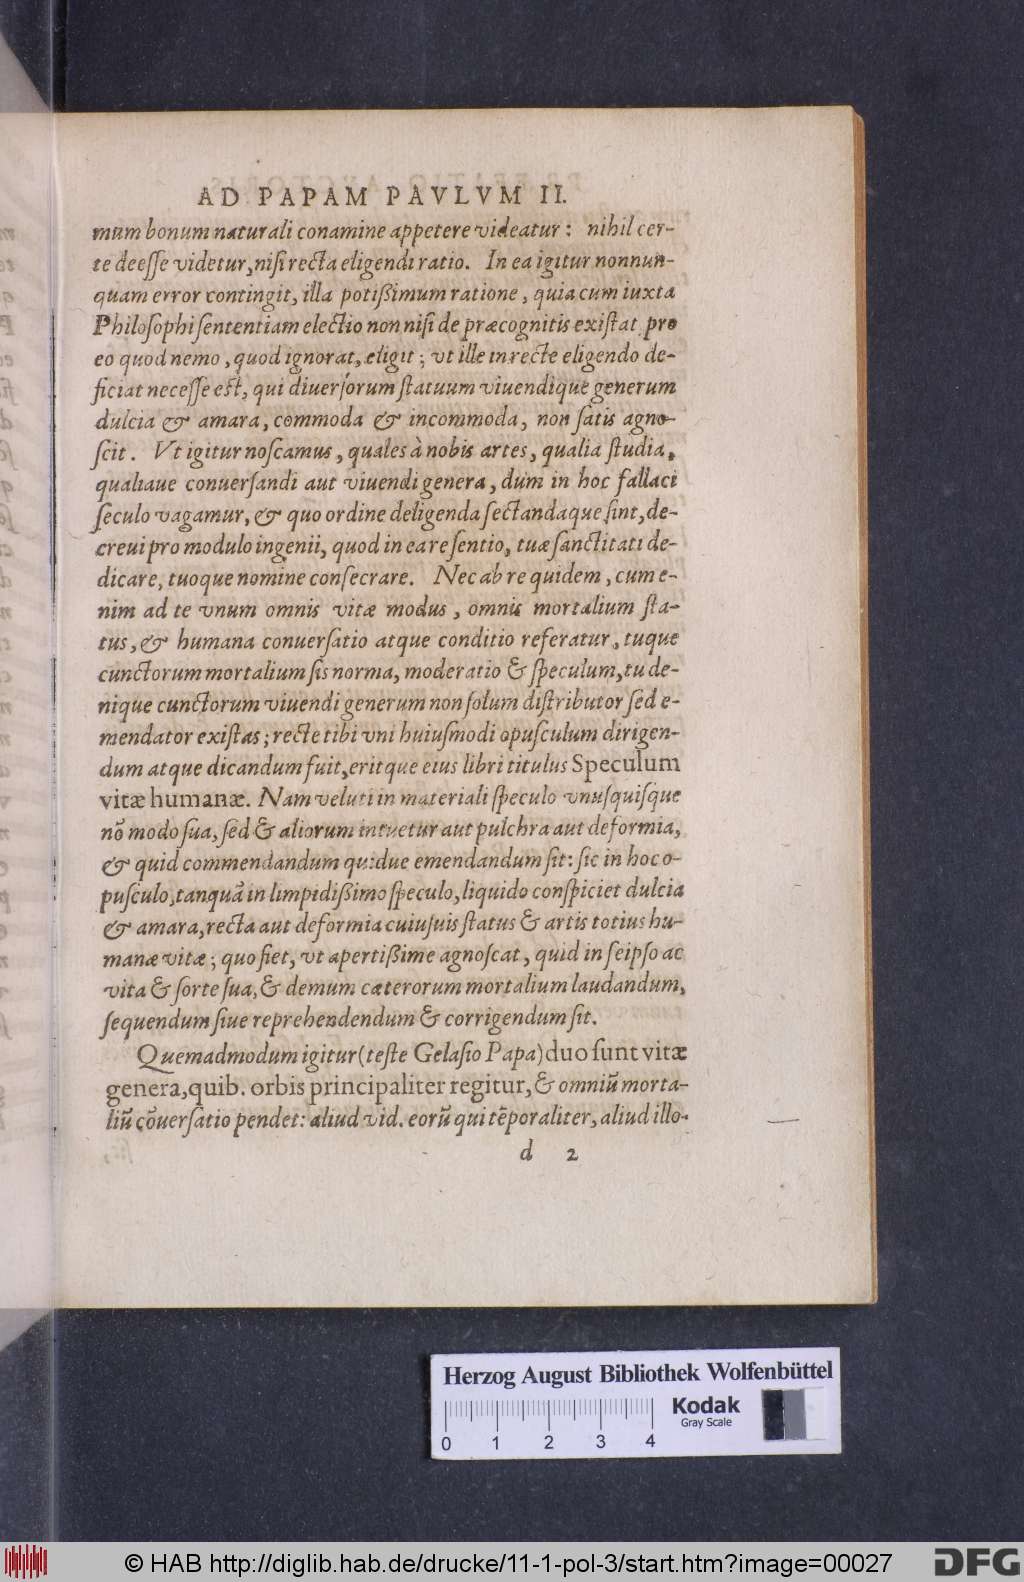 AD PAPAM PAVLVM II.
mum bonum naturali conamine appetere videatur: nihil cer-
te deeſſe videtur, niſi recta eligendi ratio. In ea igitur nonnun-
quam error contingit, illa potißimum ratione, quia cum iuxta
Philoſophi ſententiam electio non niſi de præcognitis exiſtat pro
eo quod nemo, quod ignorat, eligit; vt ille in recte eligendo de-
ficiat neceſſe est, qui diuerſorum ſtatuum viuendique generum
dulcia & amara, commoda & incommoda, non ſatis agno-
ſcit. Vt igitur noſcamus, quales à nobis artes, qualia ſtudia,
qualiaue conuerſandi aut viuendi genera, dum in hoc fallaci
ſeculo vagamur, & quo ordine deligenda ſectandaque ſint, de-
creui pro modulo ingenii, quod in ea re ſentio, tuæ ſanctitati de-
dicare, tuoque nomine conſecrare. Nec ab re quidem, cum e-
nim ad te vnum omnis vitæ modus, omnis mortalium ſta-
tus, & humana conuerſatio atque conditio referatur, tuque
cunctorum mortalium ſis norma, moderatio & ſpeculum, tu de-
nique cunctorum viuendi generum non ſolum diſtributor ſed e-
mendator exiſtas; recte tibi vni huiuſmodi opuſculum dirigen-
dum atque dicandum fuit, eritque eius libri titulus Speculum
vitæ humanæ. Nam veluti in materiali ſpeculo vnuſquiſque
nõ modo ſua, ſed & aliorum intuetur aut pulchra aut deformia,
& quid commendandum quidue emendandum ſit: ſic in hoc o-
puſculo, tanquã in limpidißimo ſpeculo, liquido conſpiciet dulcia
& amara, recta aut deformia cuiuſuis ſtatus & artis totius hu-
manæ vitæ; quo fiet, vt apertißime agnoſcat, quid in ſeipſo ac
vita & ſorte ſua, & demum cæterorum mortalium laudandum,
ſequendum ſiue reprehendendum & corrigendum ſit.
Quemadmodum igitur (teſte Gelaſio Papa) duo ſunt vitæ
genera, quib. orbis principaliter regitur, & omniũ morta-
liũ cõuerſatio pendet: aliud vid. eorũ qui tẽporaliter, aliud illo-
d 2
Herzog August Bibliothek Wolfenbüttel
Kodak
Gray Scale
0 1 2 3 4
© HAB http://diglib.hab.de/drucke/11-1-pol-3/start.htm?image=00027
DFG